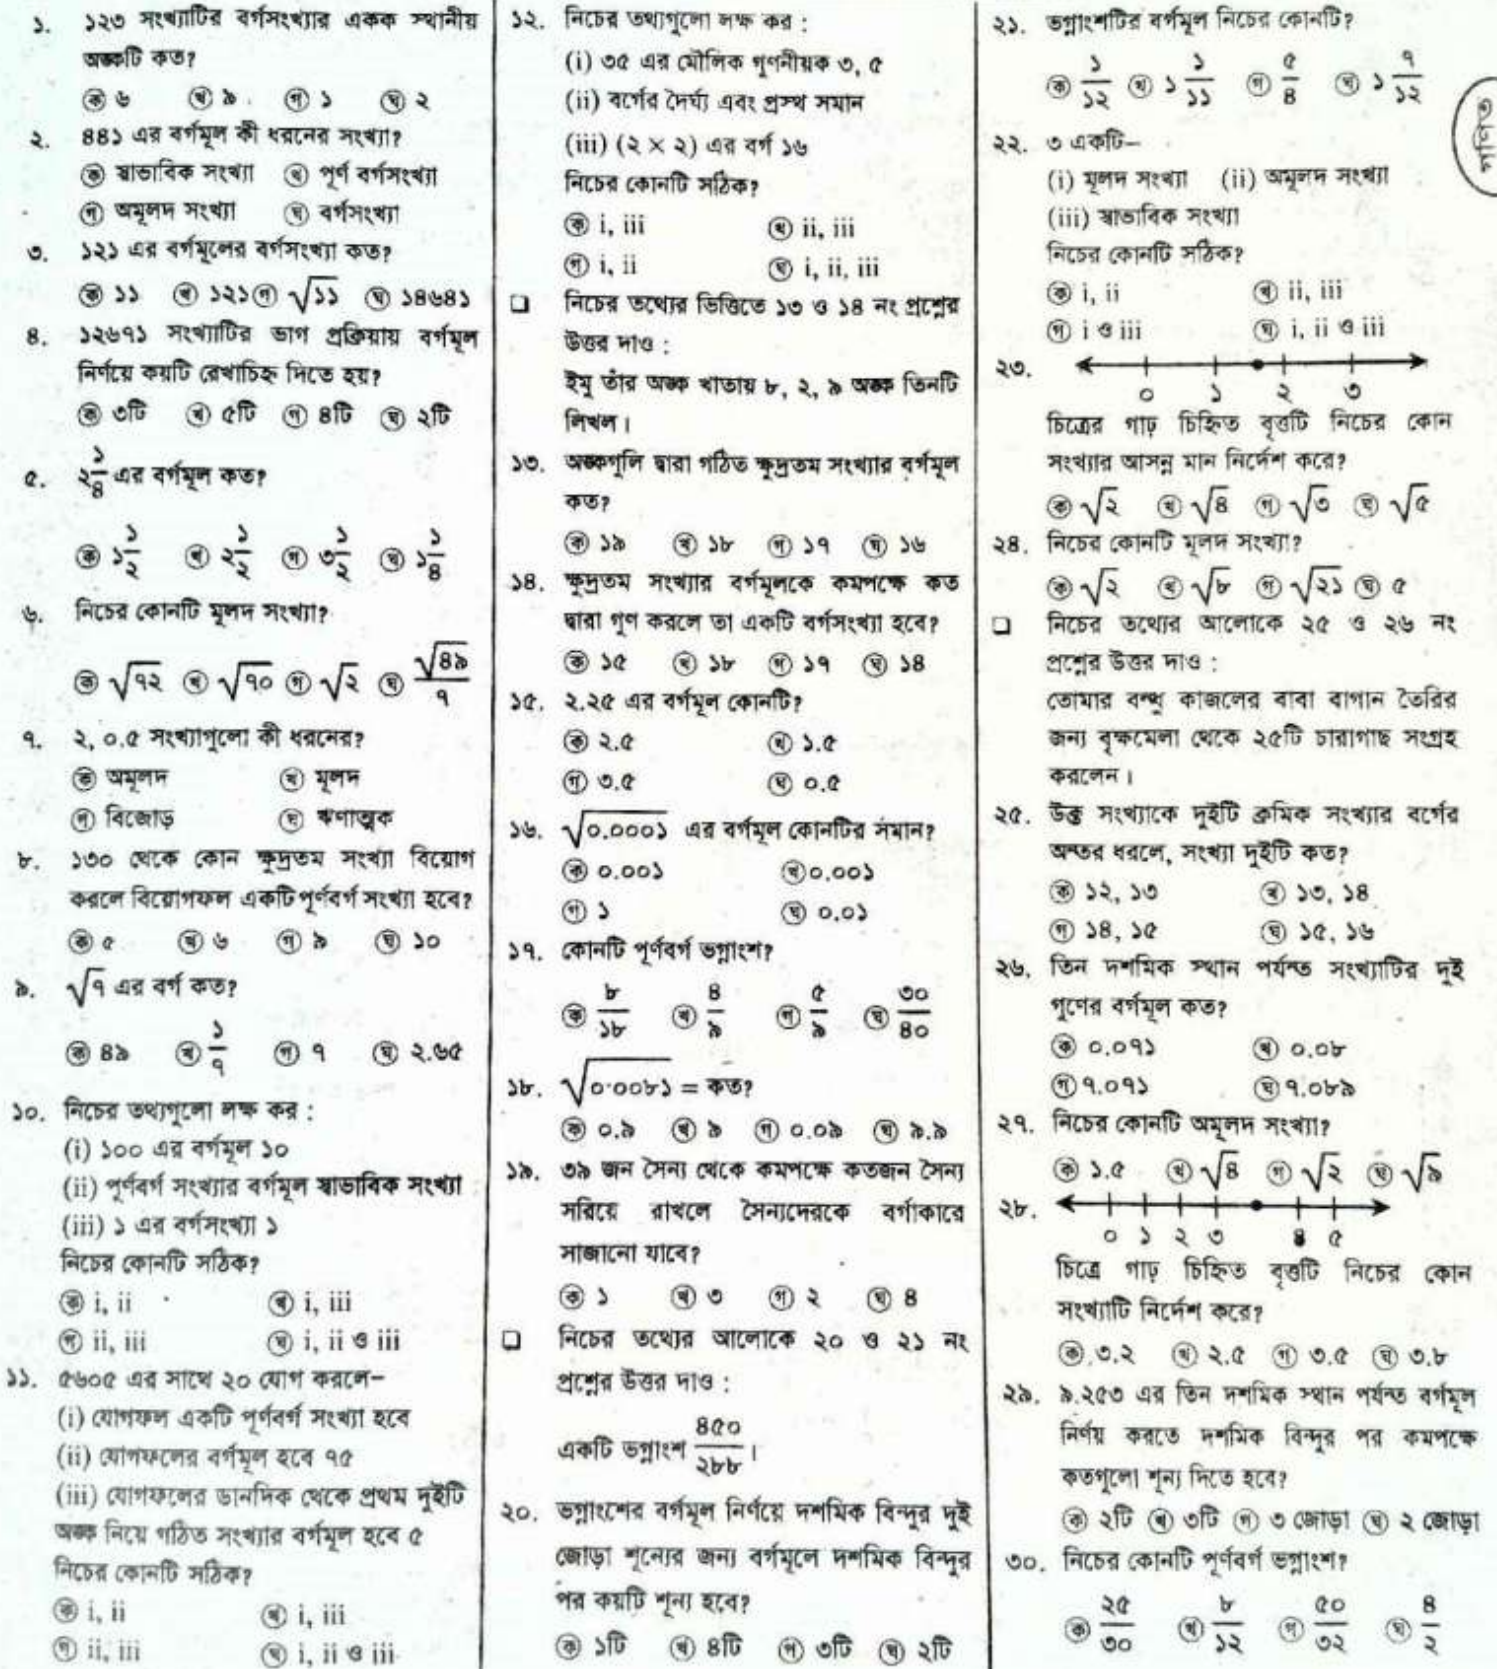 ১. ১২৩ সংখ্যাটির বর্গসংখ্যার একক স্থানীয়
অঙ্কটি কত?
ক ৬ খ ৯ গ ১ ঘ ২
২. ৪৪১ এর বর্গমূল কী ধরনের সংখ্যা?
ক স্বাভাবিক সংখ্যা খ পূর্ণ বর্গসংখ্যা
গ অমূলদ সংখ্যা ঘ বর্গসংখ্যা
৩. ১২১ এর বর্গমূলের বর্গসংখ্যা কত?
ক ১১ খ ১২১ গ √১১ ঘ ১৪৬৪১
৪. ১২৬৭১ সংখ্যাটির ভাগ প্রক্রিয়ায় বর্গমূল
নির্ণয়ে কয়টি রেখাচিহ্ন দিতে হয়?
ক ৩টি খ ৫টি গ ৪টি ঘ ২টি
৫. ২ ১/৪ এর বর্গমূল কত?
ক ১ ১/২ খ ২ ১/২ গ ৩ ১/২ ঘ ১ ১/৪
৬. নিচের কোনটি মূলদ সংখ্যা?
ক √৭২ খ √৭০ গ √২ ঘ √৪৯/৭
৭. ২, ০.৫ সংখ্যাগুলো কী ধরনের?
ক অমূলদ খ মূলদ
গ বিজোড় ঘ ঋণাত্মক
৮. ১৩০ থেকে কোন ক্ষুদ্রতম সংখ্যা বিয়োগ
করলে বিয়োগফল একটি পূর্ণবর্গ সংখ্যা হবে?
ক ৫ খ ৬ গ ৯ ঘ ১০
৯. √৭ এর বর্গ কত?
ক ৪৯ খ ১/৭ গ ৭ ঘ ২.৬৫
১০. নিচের তথ্যগুলো লক্ষ কর :
(i) ১০০ এর বর্গমূল ১০
(ii) পূর্ণবর্গ সংখ্যার বর্গমূল স্বাভাবিক সংখ্যা
(iii) ১ এর বর্গসংখ্যা ১
নিচের কোনটি সঠিক?
ক i, ii খ i, iii
গ ii, iii ঘ i, ii ও iii
১১. ৫৬০৫ এর সাথে ২০ যোগ করলে–
(i) যোগফল একটি পূর্ণবর্গ সংখ্যা হবে
(ii) যোগফলের বর্গমূল হবে ৭৫
(iii) যোগফলের ডানদিক থেকে প্রথম দুইটি
অঙ্ক নিয়ে গঠিত সংখ্যার বর্গমূল হবে ৫
নিচের কোনটি সঠিক?
ক i, ii খ i, iii
গ ii, iii ঘ i, ii ও iii
১২. নিচের তথ্যগুলো লক্ষ কর :
(i) ৩৫ এর মৌলিক গুণনীয়ক ৩, ৫
(ii) বর্গের দৈর্ঘ্য এবং প্রস্থ সমান
(iii) (২ × ২) এর বর্গ ১৬
নিচের কোনটি সঠিক?
ক i, iii খ ii, iii
গ i, ii ঘ i, ii, iii
❑ নিচের তথ্যের ভিত্তিতে ১৩ ও ১৪ নং প্রশ্নের
উত্তর দাও :
ইমু তাঁর অঙ্ক খাতায় ৮, ২, ৯ অঙ্ক তিনটি
লিখল।
১৩. অঙ্কগুলি দ্বারা গঠিত ক্ষুদ্রতম সংখ্যার বর্গমূল
কত?
ক ১৯ খ ১৮ গ ১৭ ঘ ১৬
১৪. ক্ষুদ্রতম সংখ্যার বর্গমূলকে কমপক্ষে কত
দ্বারা গুণ করলে তা একটি বর্গসংখ্যা হবে?
ক ১৫ খ ১৮ গ ১৭ ঘ ১৪
১৫. ২.২৫ এর বর্গমূল কোনটি?
ক ২.৫ খ ১.৫
গ ৩.৫ ঘ ০.৫
১৬. √০.০০০১ এর বর্গমূল কোনটির সমান?
ক ০.০০১ খ ০.০০১
গ ১ ঘ ০.০১
১৭. কোনটি পূর্ণবর্গ ভগ্নাংশ?
ক ৮/১৮ খ ৪/৯ গ ৫/৯ ঘ ৩০/৪০
১৮. √০·০০৮১ = কত?
ক ০.৯ খ ৯ গ ০.০৯ ঘ ৯.৯
১৯. ৩৯ জন সৈন্য থেকে কমপক্ষে কতজন সৈন্য
সরিয়ে রাখলে সৈন্যদেরকে বর্গাকারে
সাজানো যাবে?
ক ১ খ ৩ গ ২ ঘ ৪
❑ নিচের তথ্যের আলোকে ২০ ও ২১ নং
প্রশ্নের উত্তর দাও :
একটি ভগ্নাংশ ৪৫০/২৮৮।
২০. ভগ্নাংশের বর্গমূল নির্ণয়ে দশমিক বিন্দুর দুই
জোড়া শূন্যের জন্য বর্গমূলে দশমিক বিন্দুর
পর কয়টি শূন্য হবে?
ক ১টি খ ৪টি গ ৩টি ঘ ২টি
২১. ভগ্নাংশটির বর্গমূল নিচের কোনটি?
ক ১/১২ খ ১ ১/১১ গ ৫/৪ ঘ ১ ৭/১২
২২. ৩ একটি–
(i) মূলদ সংখ্যা (ii) অমূলদ সংখ্যা
(iii) স্বাভাবিক সংখ্যা
নিচের কোনটি সঠিক?
ক i, ii খ ii, iii
গ i ও iii ঘ i, ii ও iii
২৩.
০ ১ ২ ৩
চিত্রের গাঢ় চিহ্নিত বৃত্তটি নিচের কোন
সংখ্যার আসন্ন মান নির্দেশ করে?
ক √২ খ √৪ গ √৩ ঘ √৫
২৪. নিচের কোনটি মূলদ সংখ্যা?
ক √২ খ √৮ গ √২১ ঘ ৫
❑ নিচের তথ্যের আলোকে ২৫ ও ২৬ নং
প্রশ্নের উত্তর দাও :
তোমার বন্ধু কাজলের বাবা বাগান তৈরির
জন্য বৃক্ষমেলা থেকে ২৫টি চারাগাছ সংগ্রহ
করলেন।
২৫. উক্ত সংখ্যাকে দুইটি ক্রমিক সংখ্যার বর্গের
অন্তর ধরলে, সংখ্যা দুইটি কত?
ক ১২, ১৩ খ ১৩, ১৪
গ ১৪, ১৫ ঘ ১৫, ১৬
২৬. তিন দশমিক স্থান পর্যন্ত সংখ্যাটির দুই
গুণের বর্গমূল কত?
ক ০.০৭১ খ ০.০৮
গ ৭.০৭১ ঘ ৭.০৮৯
২৭. নিচের কোনটি অমূলদ সংখ্যা?
ক ১.৫ খ √৪ গ √২ ঘ √৯
২৮.
০ ১ ২ ৩ ৪ ৫
চিত্রে গাঢ় চিহ্নিত বৃত্তটি নিচের কোন
সংখ্যাটি নির্দেশ করে?
ক ৩.২ খ ২.৫ গ ৩.৫ ঘ ৩.৮
২৯. ৯.২৫৩ এর তিন দশমিক স্থান পর্যন্ত বর্গমূল
নির্ণয় করতে দশমিক বিন্দুর পর কমপক্ষে
কতগুলো শূন্য দিতে হবে?
ক ২টি খ ৩টি গ ৩ জোড়া ঘ ২ জোড়া
৩০. নিচের কোনটি পূর্ণবর্গ ভগ্নাংশ?
ক ২৫/৩০ খ ৮/১২ গ ৫০/৩২ ঘ ৪/২
গণিত